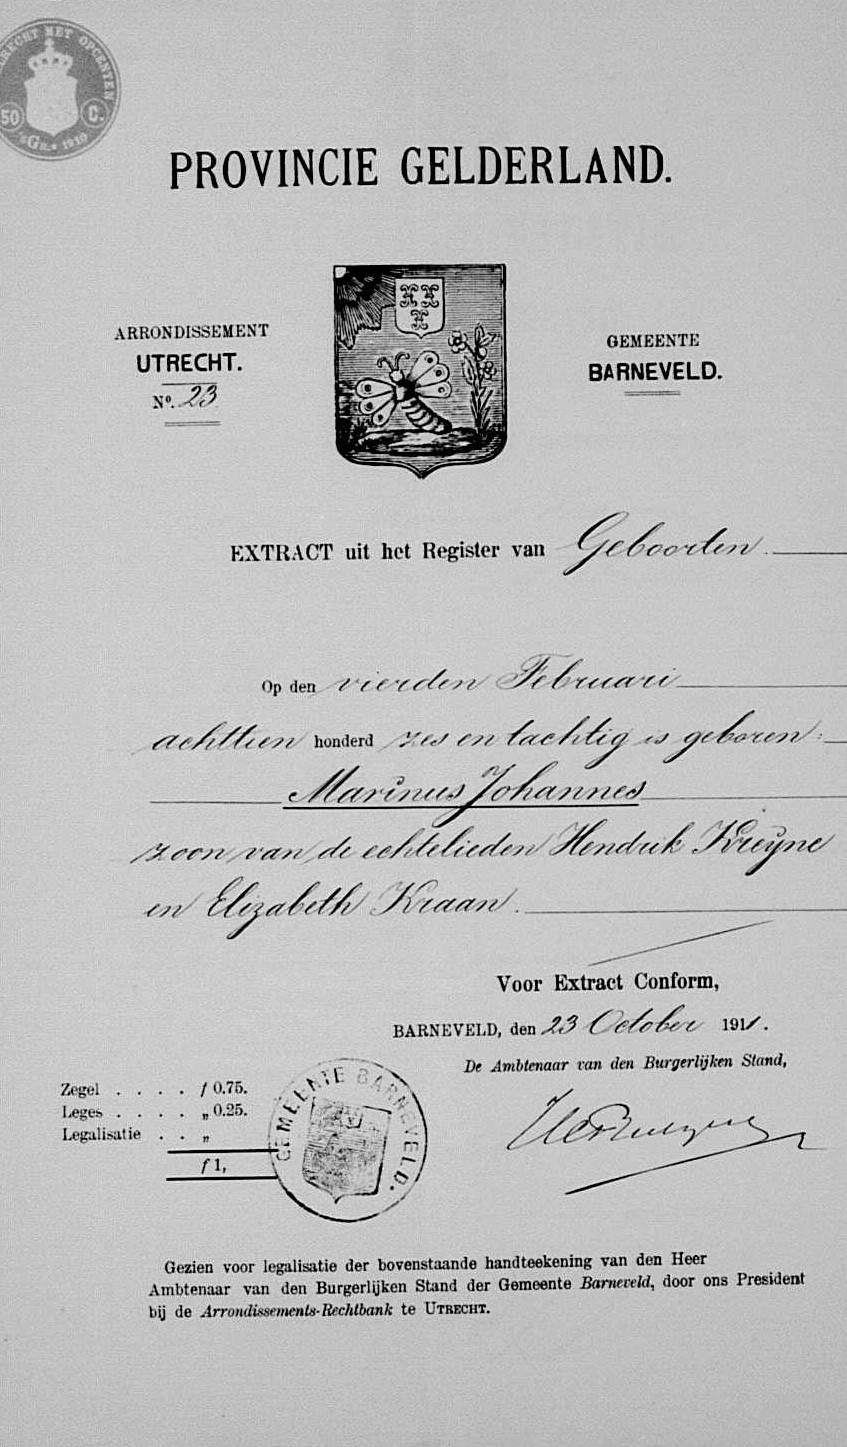 RECHT MET OPCENTEN
50 C.
'S GR. 1910
PROVINCIE GELDERLAND.
ARRONDISSEMENT
UTRECHT.
No. 23
GEMEENTE
BARNEVELD.
EXTRACT uit het Register van Geboorten.
Op den vierden Februari
achttien honderd zes en tachtig is geboren:
Marinus Johannes
zoon van de echtelieden Hendrik Kreyne
en Elizabeth Kraan.
Voor Extract Conform,
BARNEVELD, den 23 October 1911.
De Ambtenaar van den Burgerlijken Stand,
Zegel . . . . f 0.75.
Leges . . . . „ 0.25.
Legalisatie . . „
f 1,
GEMEENTE BARNEVELD.
Gezien voor legalisatie der bovenstaande handteekening van den Heer
Ambtenaar van den Burgerlijken Stand der Gemeente Barneveld, door ons President
bij de Arrondissements-Rechtbank te UTRECHT.